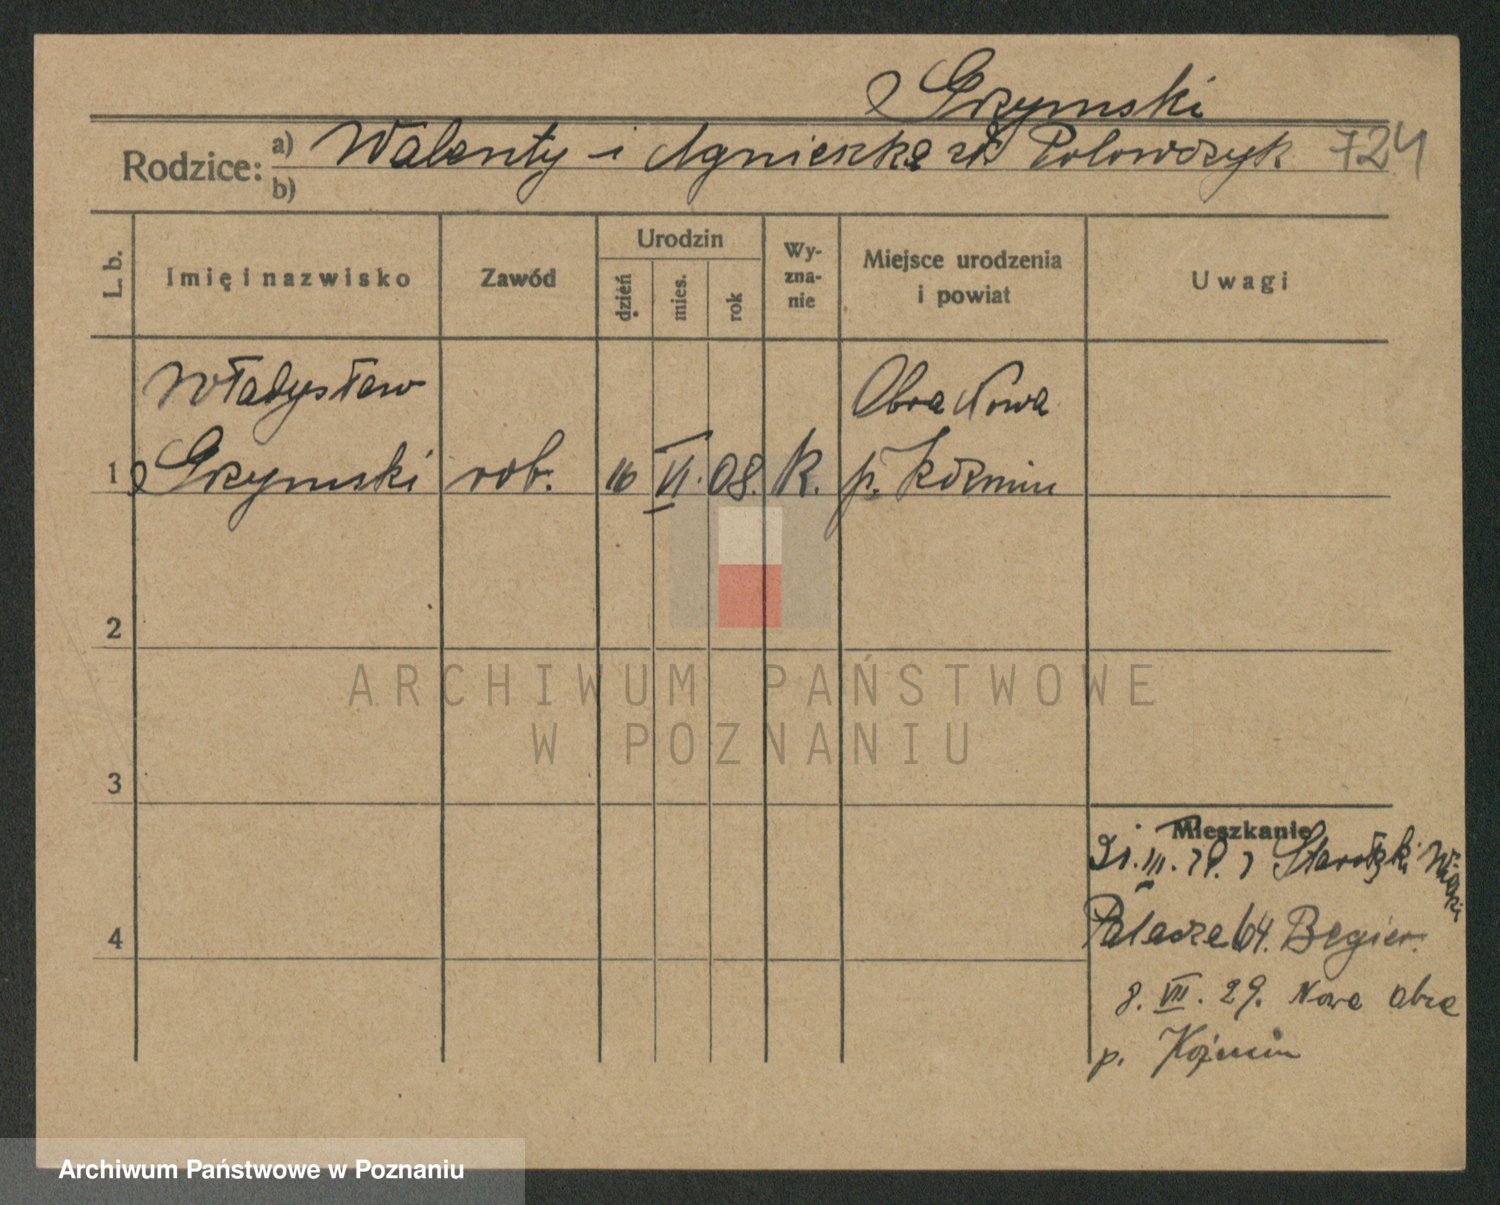 Grzymski
Rodzice: a) Walenty i Agnieszka zd. Polowczyk 724
b)
L. b.
Imię i nazwisko
Zawód
Urodzin
dzień
mies.
rok
Wy-
zna-
nie
Miejsce urodzenia
i powiat
Uwagi
Władysław
Obra Nowa
1 Grzymski rob. 16 VI. 08. k. p. Koźmin
2
3
4
Mieszkanie
Palacza 64. Begier.
8. VII. 29. Nowa Obra
p. Koźmin
ARCHIWUM PAŃSTWOWE
W POZNANIU
Archiwum Państwowe w Poznaniu